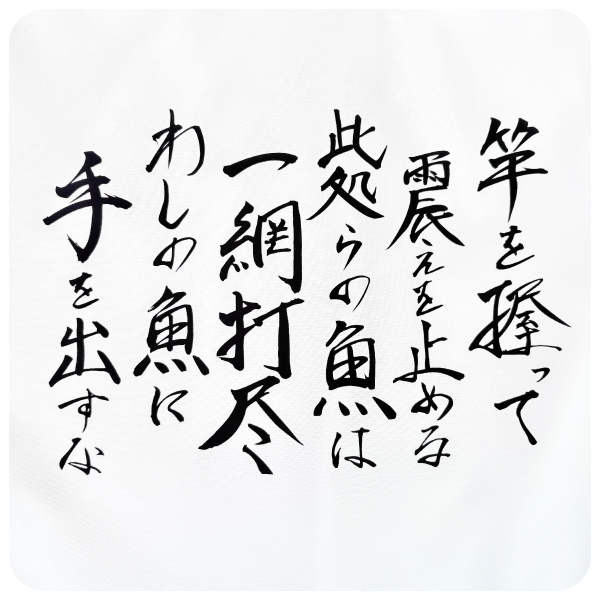 竿を握って
震えを止めるな
此処らの魚は
一網打尽
わしの魚に
手を出すな